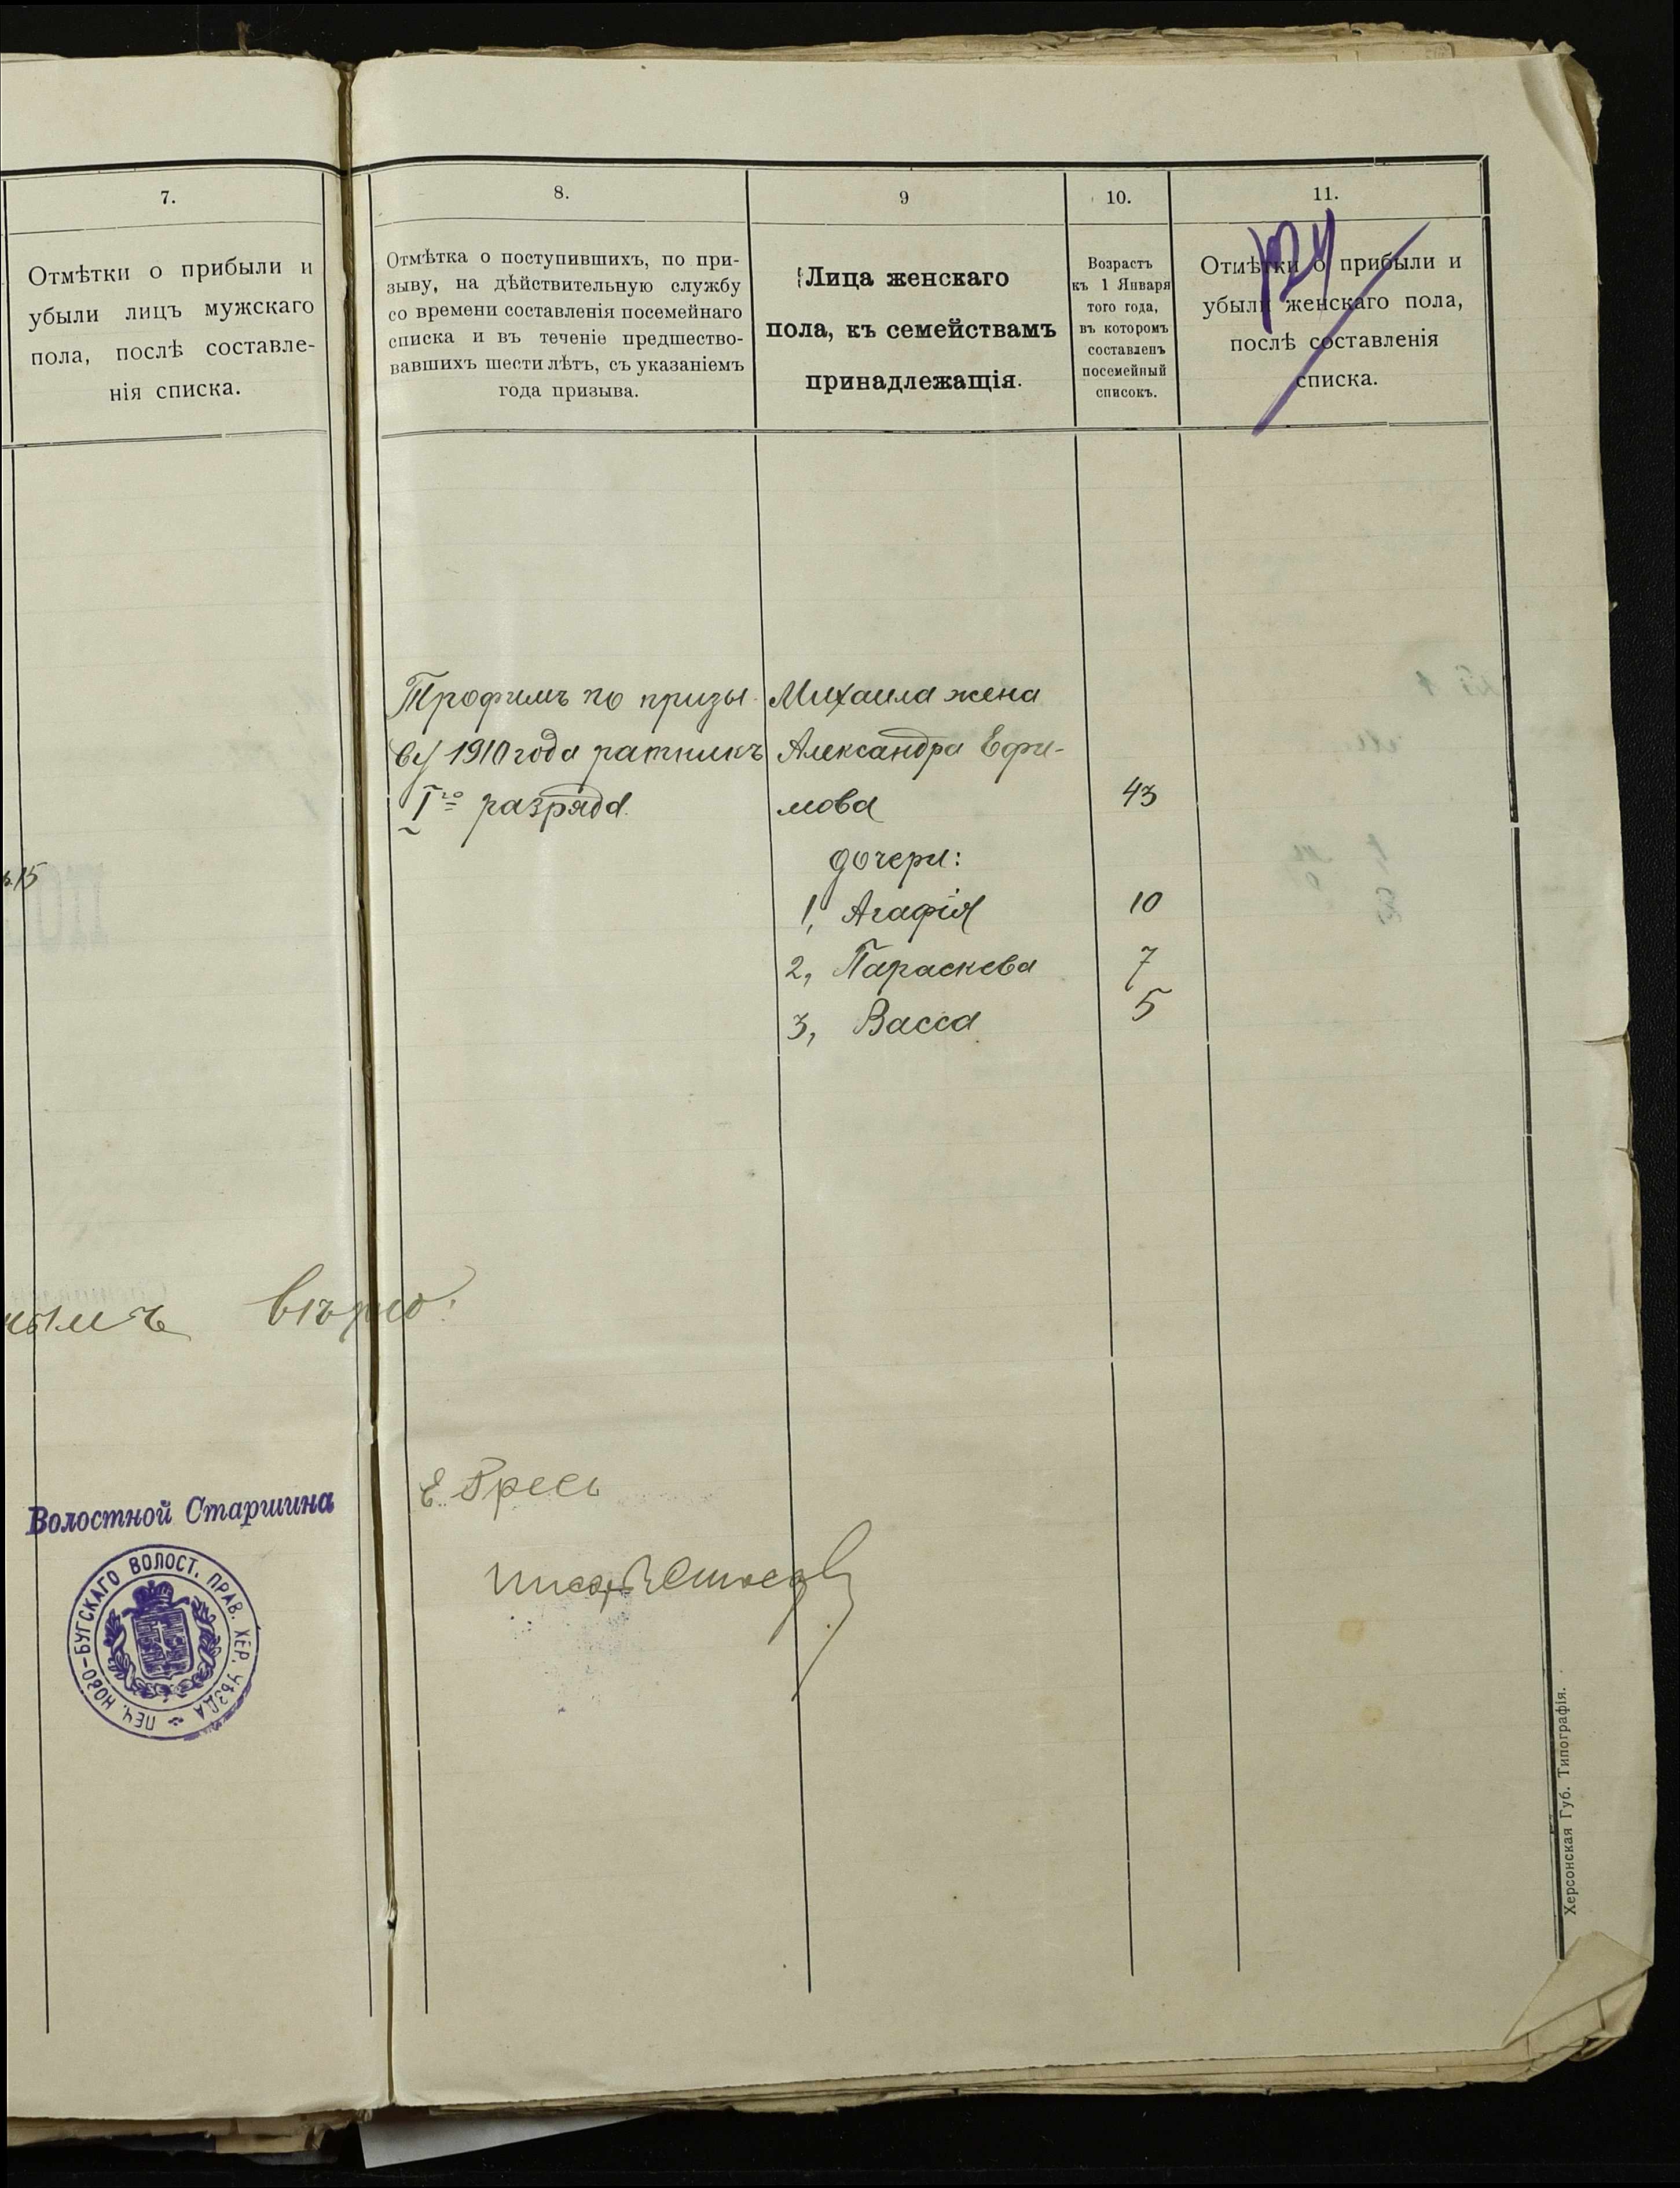 7.
Отмѣтки о прибыли и
убыли лицъ мужскаго
пола, послѣ составле-
нія списка.
8.
Отмѣтка о поступившихъ, по при-
зыву, на дѣйствительную службу
со времени составленія посемейнаго
списка и въ теченіе предшество-
вавшихъ шести лѣтъ, съ указаніемъ
года призыва.
9
Лица женскаго
пола, къ семействамъ
принадлежащія.
10.
Возрастъ
къ 1 Января
того года,
въ которомъ
составленъ
посемейный
списокъ.
11.
Отмѣтки о прибыли и
убыли женскаго пола,
послѣ составленія
списка.
Трофимъ по призы
ву 1910 года ратникъ
Iго разряда.
Михаила жена
Александра Ефи-
мова 43
дочери:
1, Агафія 10
2, Параскева 7
3, Васса 5
15
вѣрно:
Волостной Старшина
ПЕЧ. НОВО-БУГСКАГО ВОЛОСТ. ПРАВ. ХЕР. УѢЗДА
Херсонская Губ. Типографія.